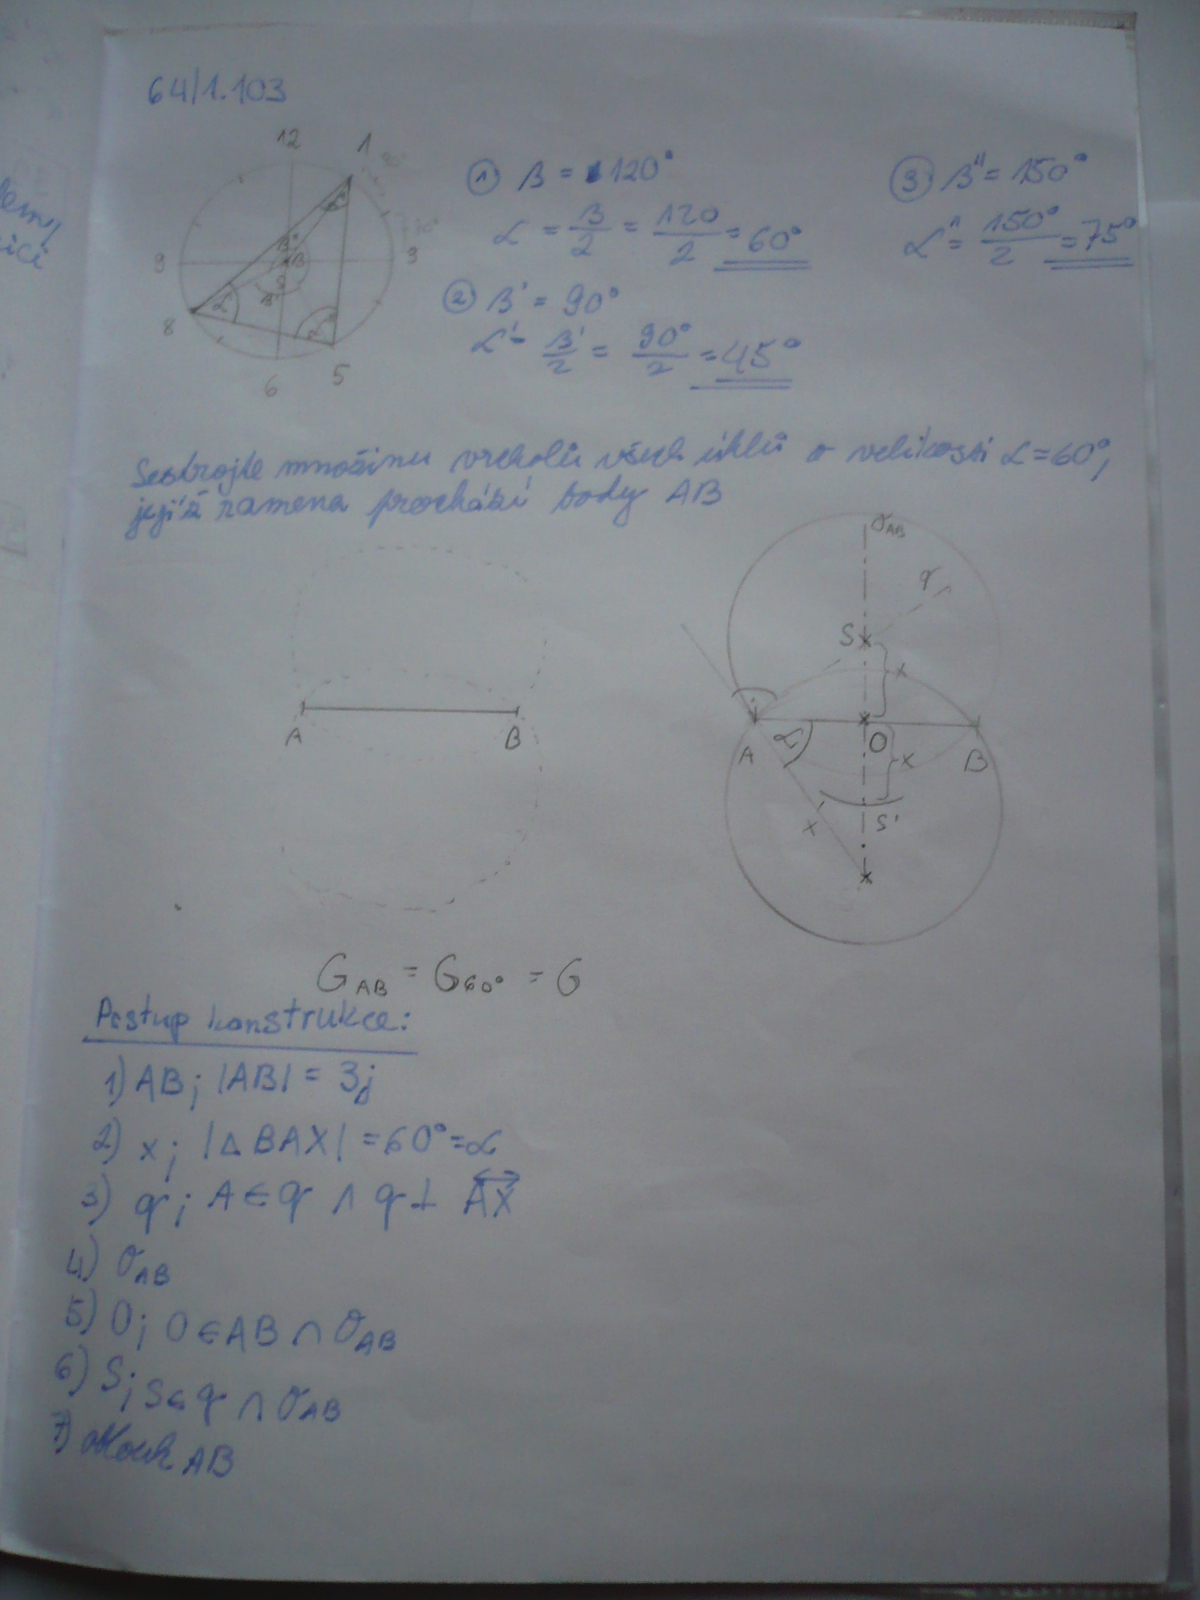 64/1.103
12
1
3
9
8
6
5
① β = 120°
α = β/2 = 120/2 = 60°
② β' = 90°
α' = β'/2 = 90°/2 = 45°
③ β'' = 150°
α'' = 150°/2 = 75°
Sestrojte množinu vrcholů všech úhlů o velikosti α=60°,
jejíž ramena prochází body AB
A B
σAB
q
S
x
A α O B
x
x S'
GAB = G60° = G
Postup konstrukce:
1) AB; |AB| = 3j
2) x; |∆ BAX| = 60° = α
3) q; A ∈ q ∧ q ⊥ AX
4) σAB
5) O; O ∈ AB ∩ σAB
6) S; S ∈ q ∩ σAB
7) oblouk AB